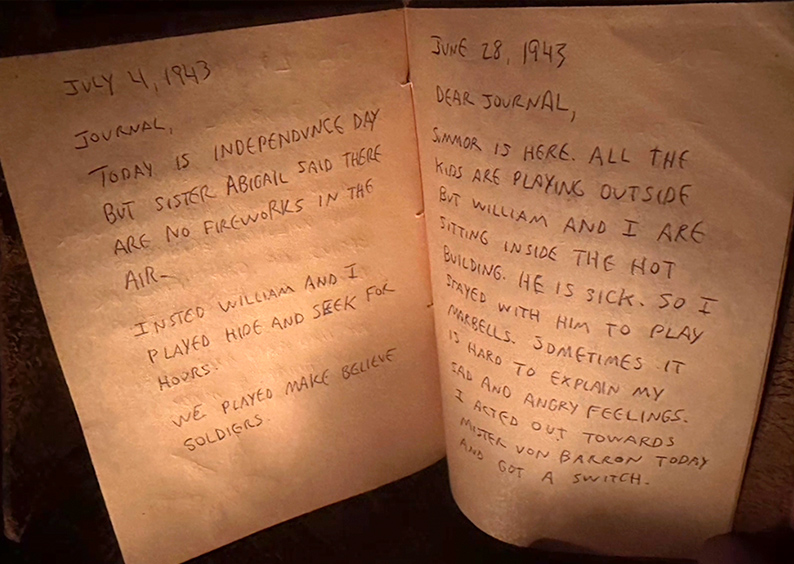 JULY 4, 1943
JOURNAL,
TODAY IS INDEPENDVNCE DAY
BUT SISTER ABIGAIL SAID THERE
ARE NO FIREWORKS IN THE
AIR-
INSTED WILLIAM AND I
PLAYED HIDE AND SEEK FOR
HOURS.
WE PLAYED MAKE BELIEVE
SOLDIERS.
JUNE 28, 1943
DEAR JOURNAL,
SUMMOR IS HERE. ALL THE
KIDS ARE PLAYING OUTSIDE
BUT WILLIAM AND I ARE
SITTING INSIDE THE HOT
BUILDING. HE IS SICK. SO I
STAYED WITH HIM TO PLAY
MARBELLS. SOMETIMES IT
IS HARD TO EXPLAIN MY
SAD AND ANGRY FEELINGS.
I ACTED OUT TOWARDS
MISTER VON BARRON TODAY
AND GOT A SWITCH.